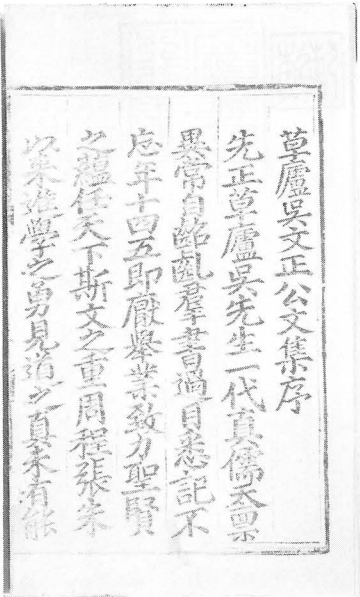 草廬吳文正公文集序
先正草廬吳先生一代真儒天禀
異常自髫齓羣書過目悉記不
忘年十四五即厭舉業致力聖賢
之蘊任天下斯文之重周程張朱
以來進學之勇見道之真未有能